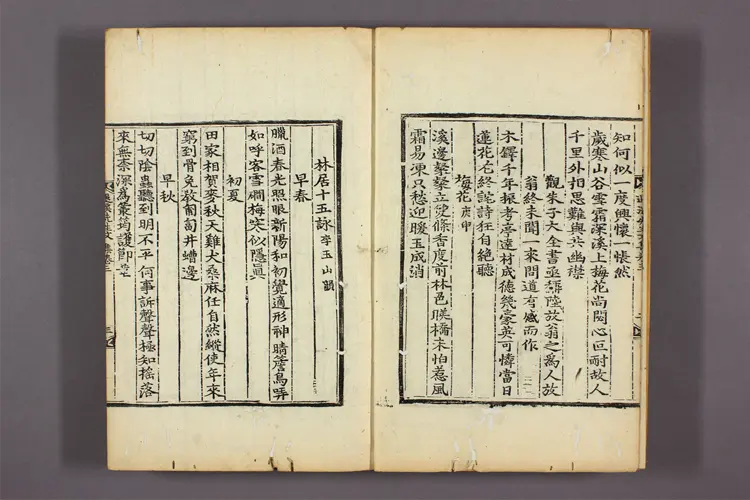 知何似一度興懷一悵然
歲寒山谷雪霜深溪上梅花尚閟心叵耐故人
千里外相思難與共幽襟
觀朱子大全書亟稱陸放翁之爲人放
翁終未聞一來問道有感而作
木鐸千年振考亭達材成德幾豪英可憐當日
蓮花老終詫詩狂自絶聽
梅花 庚申
溪邊粲粲立雙條香度前林色映橋未怕惹風
霜易凍只愁迎暖玉成消
林居十五詠 李玉山韻
早春
臘酒春光照眼新陽和初覺適形神晴簷鳥哢
如呼客雪磵梅寒似隱眞
初夏
田家相賀麥秋天雞犬桑麻任自然縱使年來
窮到骨免敎匍匐井螬邊
早秋
切切陰蟲聽到明不平何事訴聲聲極知搖落
來無柰深爲叢筠護節